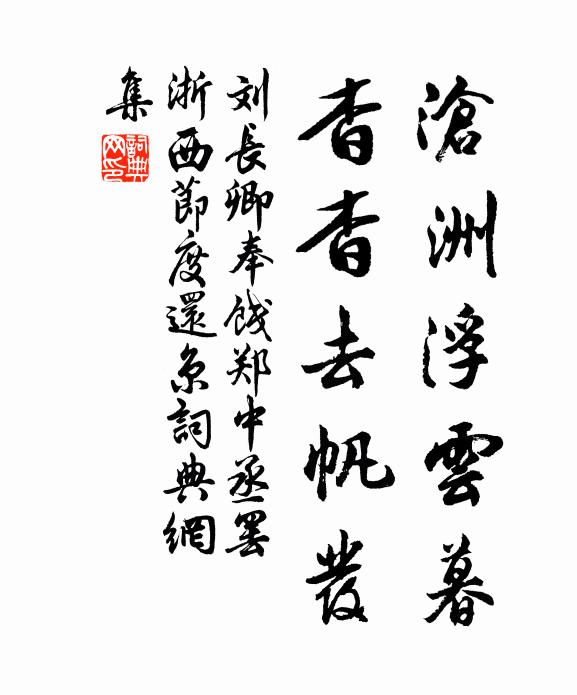 滄洲浮雲暮
杳杳去帆發
刘長卿奉餞郑中丞罢
浙西節度還京詞典網
集
詞典
网印